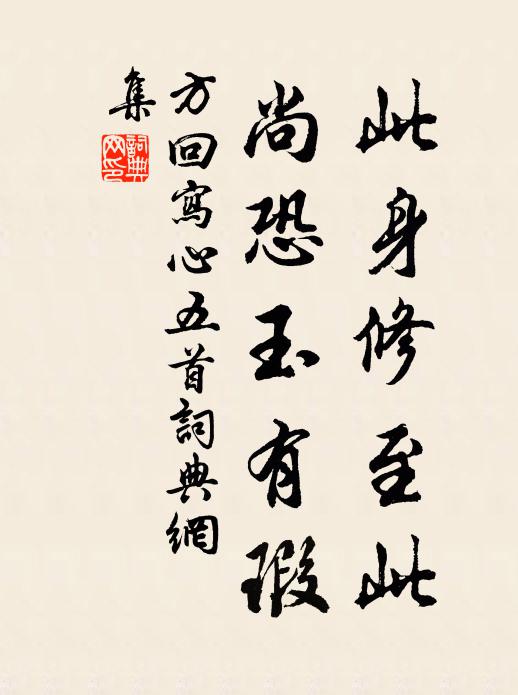 此身修至此
尚恐玉有瑕
方回寫心五首詞典網
集
詞典
网印